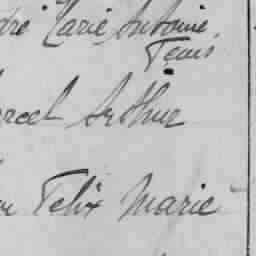 dré Marie Antoine
Denis
arcel Arthur
Felix Marie